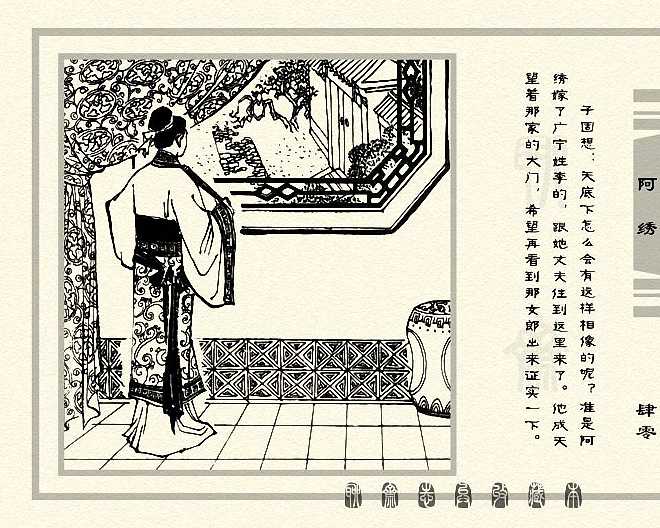 子固想，天底下怎么会有这样相像的呢？准是阿
绣嫁了广宁姓李的，跟她丈夫住到这里来了。他成天
望着那家的大门，希望再看到那女郎出来证实一下。
阿绣
肆零